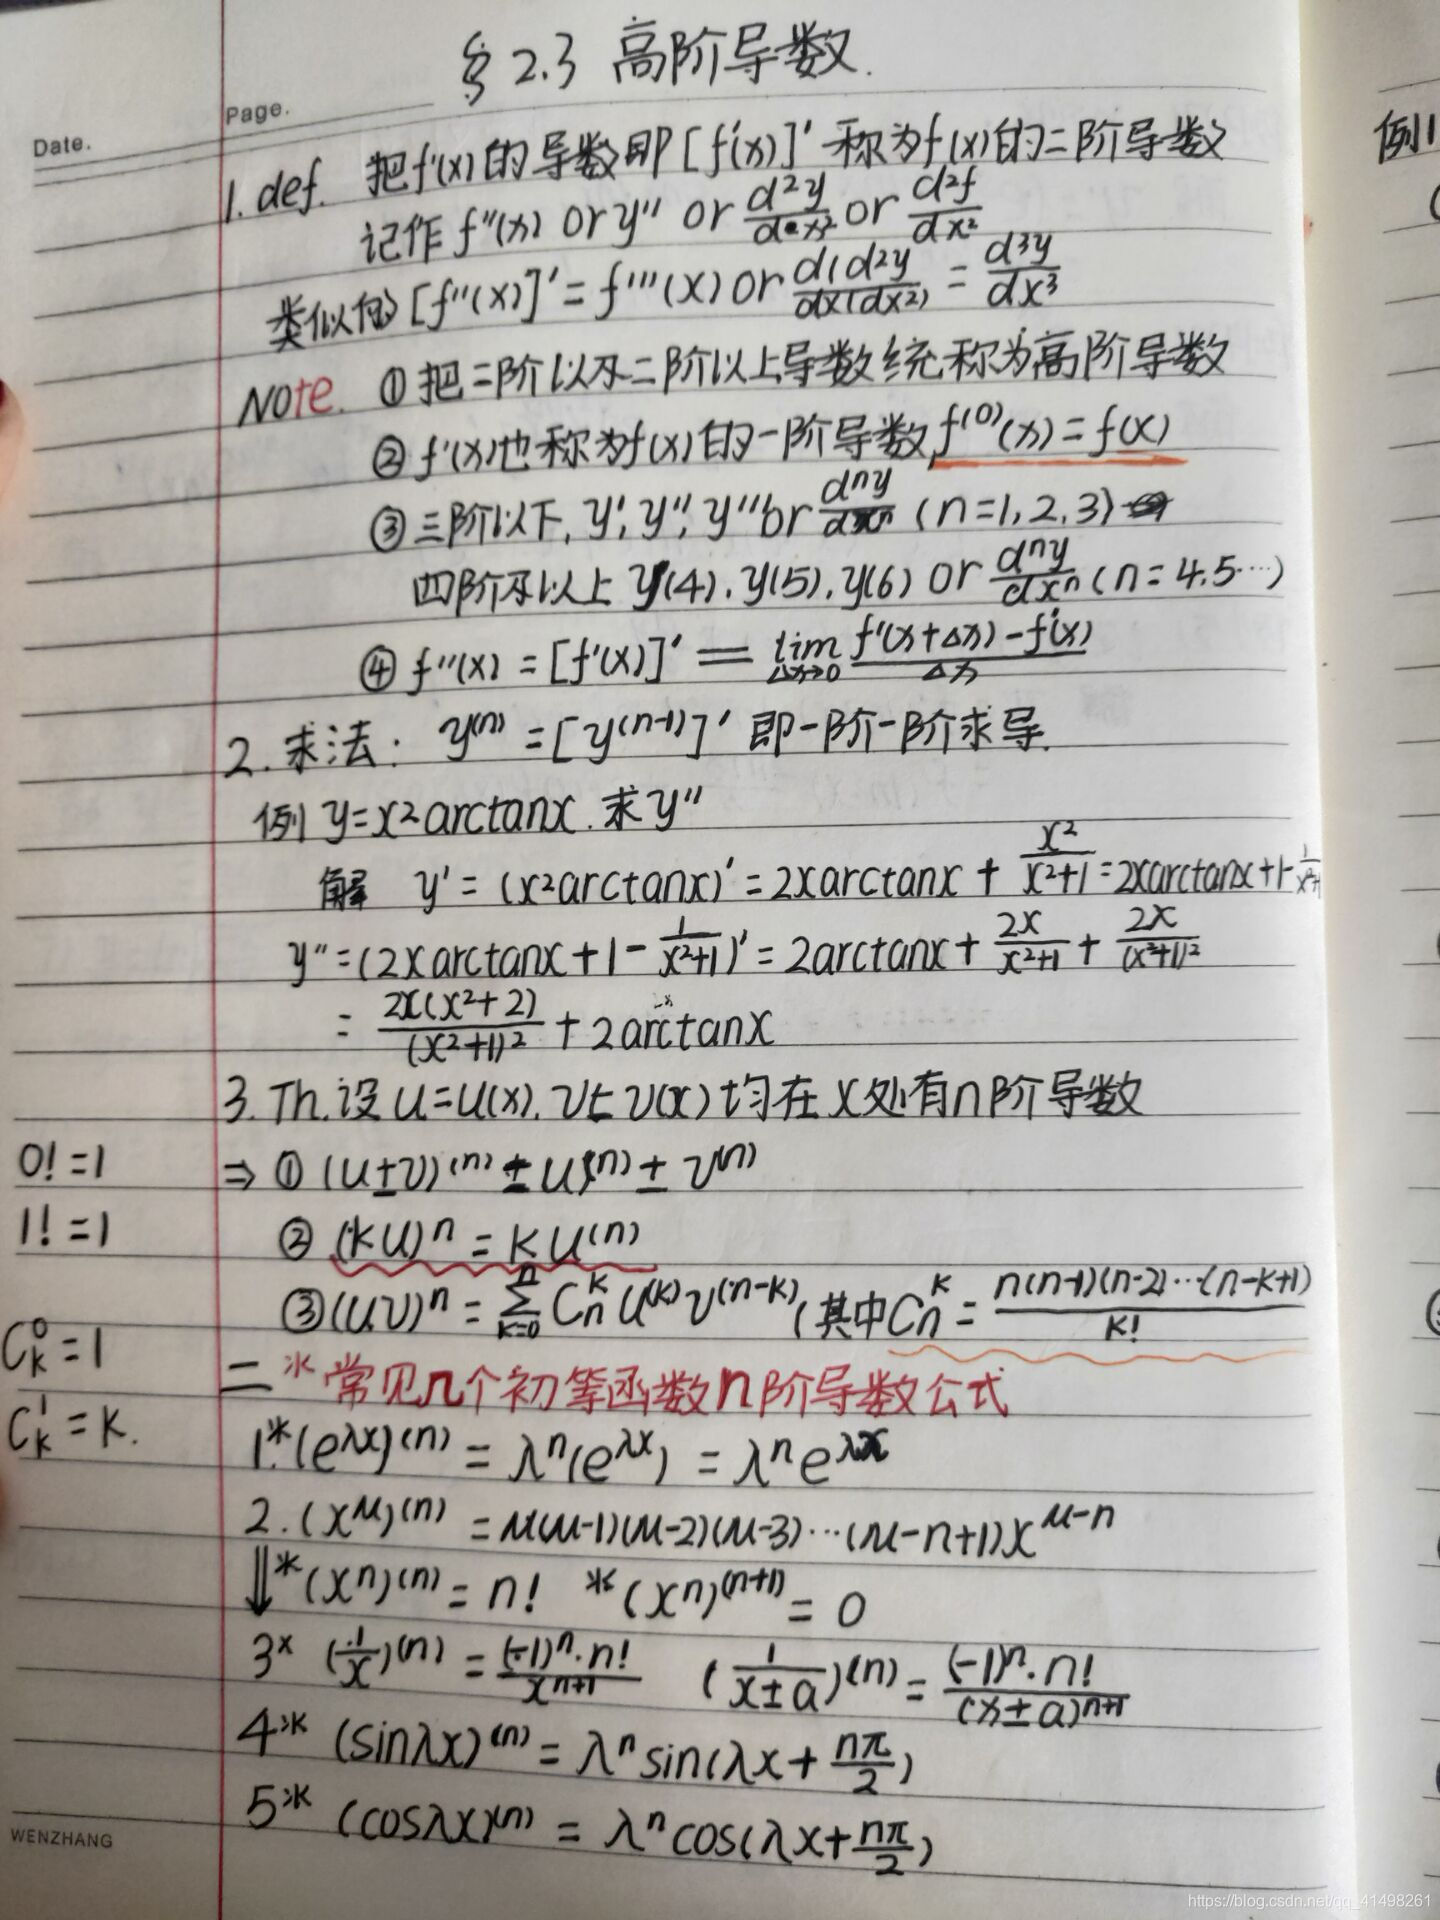 § 2.3 高阶导数.
Page.
Date.
1. def. 把f'(x)的导数即[f'(x)]'称为f(x)的二阶导数
记作 f''(x) or y'' or d²y/dx² or d²f/dx²
类似的[f''(x)]' = f'''(x) or d(d²y/dx(dx²) = d³y/dx³
Note. ① 把二阶以及二阶以上导数统称为高阶导数
② f'(x)也称为f(x)的一阶导数, f⁽⁰⁾(x) = f(x)
③ 三阶以下, y', y'', y''' or dⁿy/dxⁿ (n=1,2,3)
四阶及以上 y(4), y(5), y(6) or dⁿy/dxⁿ (n=4,5…)
④ f''(x) = [f'(x)]' = lim Δx→0 f'(x+Δx)-f'(x)/Δx
2. 求法: y⁽ⁿ⁾ = [y⁽ⁿ⁻¹⁾]' 即一阶一阶求导.
例 y=x²arctanx. 求y''
解 y' = (x²arctanx)' = 2xarctanx + x²/x²+1 = 2xarctanx+1-1/x²+1
y'' = (2xarctanx+1-1/x²+1)' = 2arctanx + 2x/x²+1 + 2x/(x²+1)²
= 2x(x²+2)/(x²+1)² + 2arctanx
3. Th. 设u=u(x), v=v(x)均在x处有n阶导数
0! = 1
⇒ ① (u±v)⁽ⁿ⁾ = u⁽ⁿ⁾ ± v⁽ⁿ⁾
1! = 1
② (ku)ⁿ = ku⁽ⁿ⁾
③ (uv)ⁿ = Σₖ₌₀ⁿ Cₙᵏ u⁽ᵏ⁾v⁽ⁿ⁻ᵏ⁾ (其中Cₙᵏ = n(n-1)(n-2)…(n-k+1)/k!
Cₖ⁰ = 1
二 * 常见几个初等函数n阶导数公式
Cₖ¹ = k.
1.* (e^λx)⁽ⁿ⁾ = λⁿ(e^λx) = λⁿe^λx
2. (x^μ)⁽ⁿ⁾ = μ(μ-1)(μ-2)(μ-3)…(μ-n+1)x^μ-n
⇓ * (xⁿ)⁽ⁿ⁾ = n! * (xⁿ)⁽ⁿ⁺¹⁾ = 0
3* (1/x)⁽ⁿ⁾ = (-1)ⁿ·n!/xⁿ⁺¹ (1/x±a)⁽ⁿ⁾ = (-1)ⁿ·n!/(x±a)ⁿ⁺¹
4* (sinλx)⁽ⁿ⁾ = λⁿsin(λx+nπ/2)
5* (cosλx)⁽ⁿ⁾ = λⁿcos(λx+nπ/2)
WENZHANG
例1
https://blog.csdn.net/qq_41498261